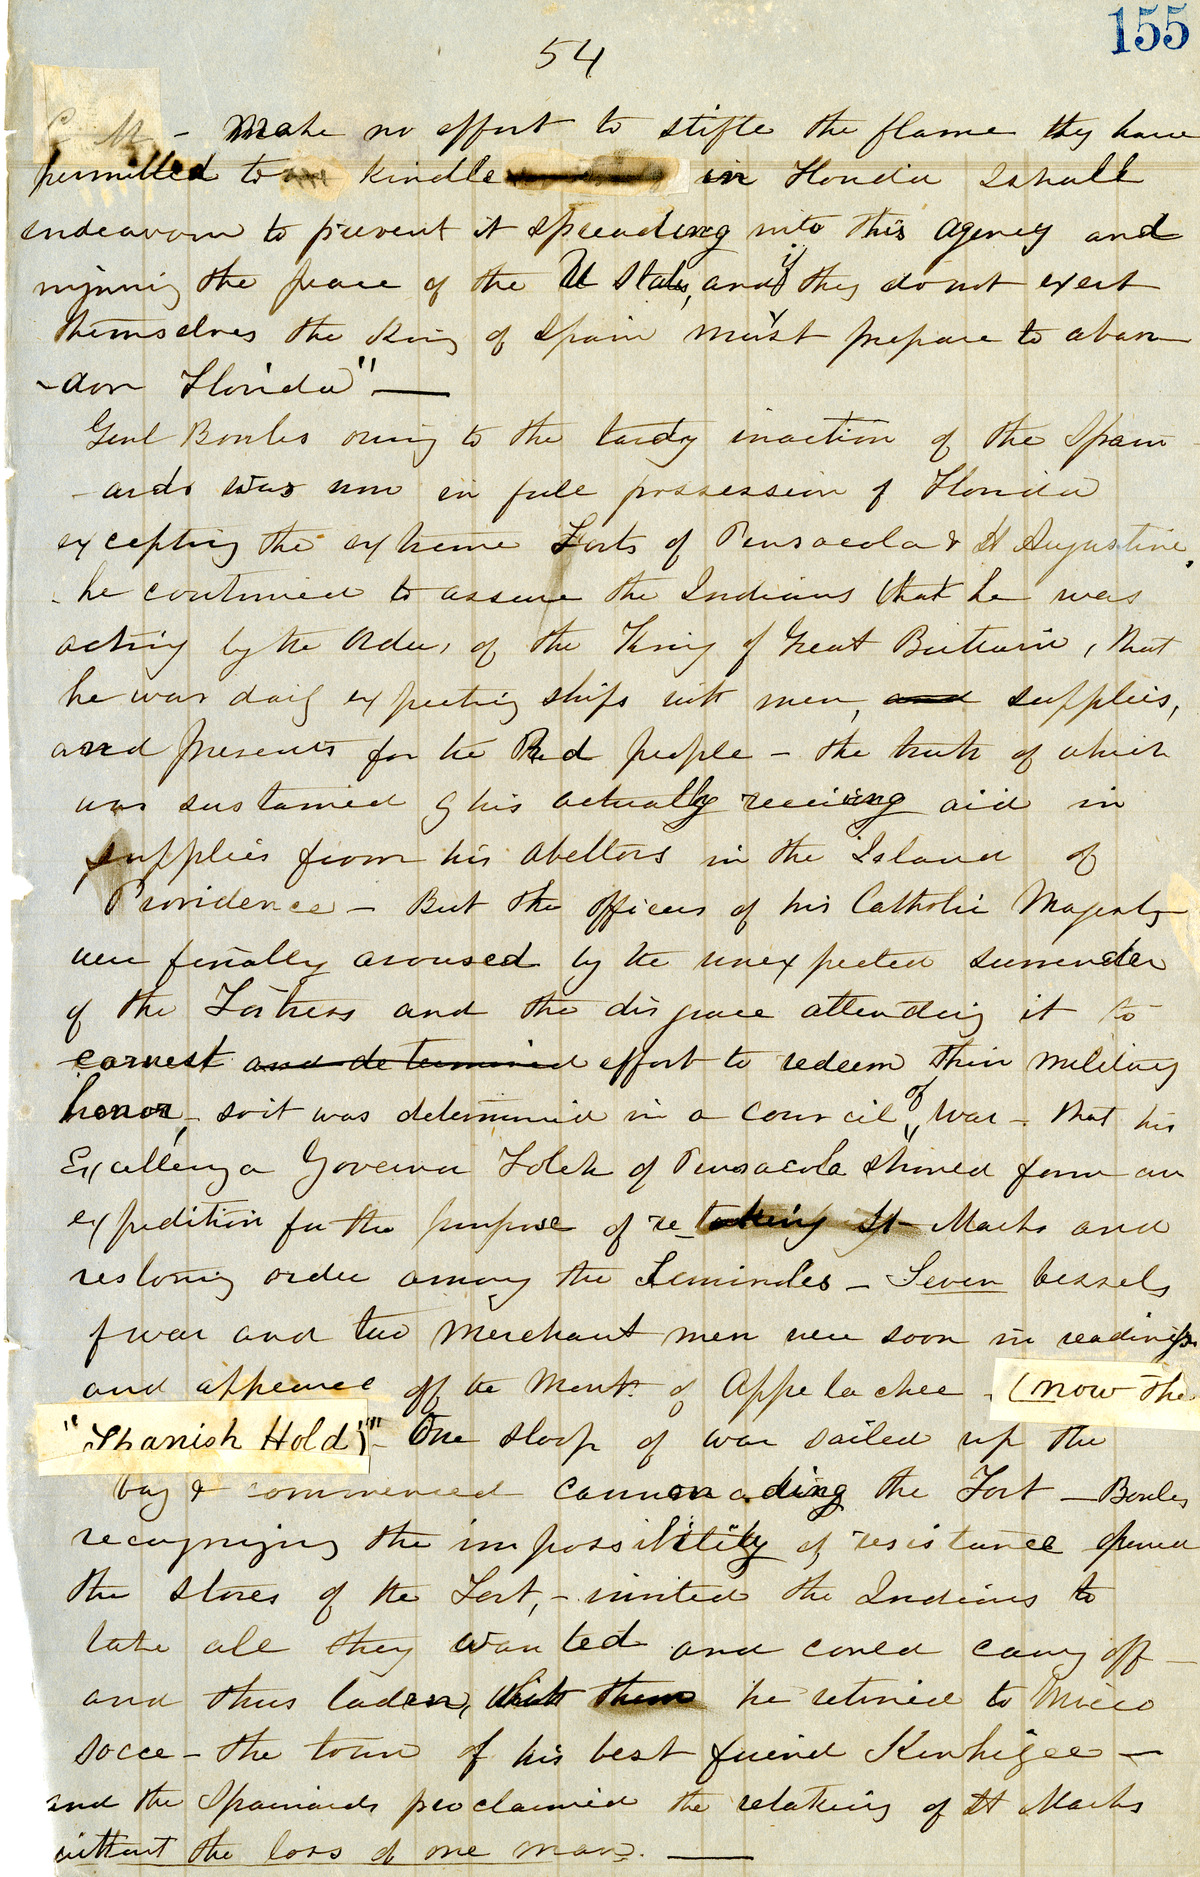 155
54
C M - Make no effort to stifle the flame they have
permitted to kindle in Florida I shall
endeavour to prevent it spreading into this agency and
injuring the peace of the U States, and if they do not exert
themselves the King of Spain must prepare to aban
-don Florida" —
Genl Bowles owing to the tardy inaction of the Spani
-ards was now in full possession of Florida
excepting the extreme Forts of Pensacola & St Augustine.
- he continued to assure the Indians that he was
acting by the orders of the King of Great Brittain, that
he was daily expecting ships with men, and supplies,
and presents for the Red people - the truth of which
was sustained by his actually receiving aid in
supplies from his abettors in the Island of
Providence - But the officers of his Catholic Majesty
were finally aroused by the unexpected surrender
of the Fortress and the disgrace attending it to
earnest and determined effort to redeem their military
honor, - so it was determined in a council of War - that his
Excellency Governor Folch of Pensacola should form an
expedition for the purpose of re-taking St Marks and
restoring order among the Seminoles - Seven vessels
of war and two Merchant men were soon in readiness
and appeared off the Mouth of Appelachee - (now the
"Spanish Hold")" - One sloop of war sailed up the
bay & commenced cannonading the Fort - Bowles
recognizing the impossibility of resistance opened
the stores of the Fort, - invited the Indians to
take all they wanted and could carry off -
and thus laden, with them he retired to Micco
socce - the town of his best friend Kenhigee -
and the Spaniards proclaimed the retaking of St Marks
without the loss of one man. —